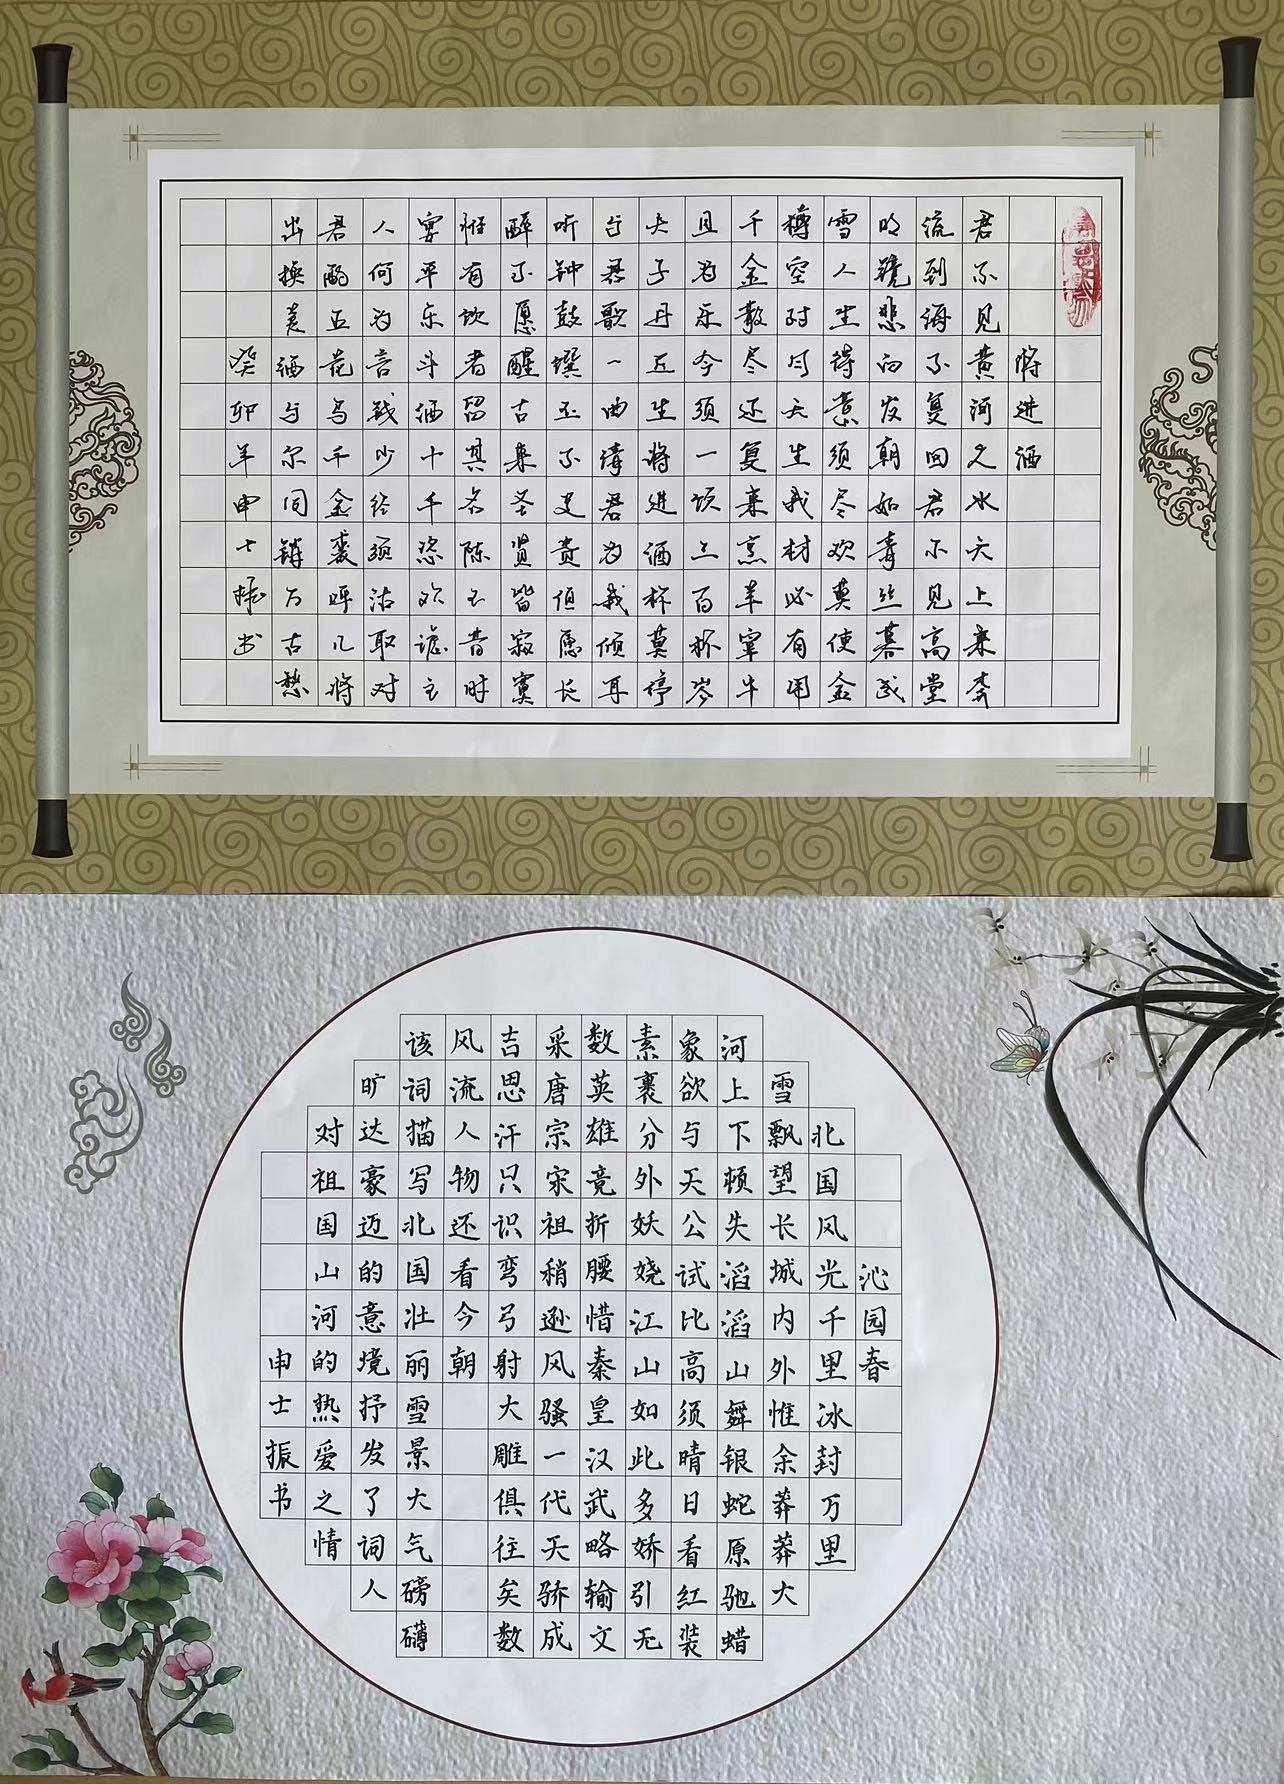 将进酒
君不见黄河之水天上来奔
流到海不复回君不见高堂
明镜悲白发朝如青丝暮成
雪人生得意须尽欢莫使金
樽空对月天生我材必有用
千金散尽还复来烹羊宰牛
且为乐会须一饮三百杯岑
夫子丹丘生将进酒杯莫停
与君歌一曲请君为我倾耳
听钟鼓馔玉不足贵但愿长
醉不愿醒古来圣贤皆寂寞
惟有饮者留其名陈王昔时
宴平乐斗酒十千恣欢谑主
人何为言钱少径须沽取对
君酌五花马千金裘呼儿将
出换美酒与尔同销万古愁
癸卯年申士振书
沁园春
北国风光千里冰封万里
雪飘望长城内外惟余莽莽大
河上下顿失滔滔山舞银蛇原驰蜡
象欲与天公试比高须晴日看红装
素裹分外妖娆江山如此多娇引无
数英雄竞折腰惜秦皇汉武略输文
采唐宗宋祖稍逊风骚一代天骄成
吉思汗只识弯弓射大雕俱往矣数
风流人物还看今朝
该词描写北国壮丽雪景大气磅礴
旷达豪迈的意境抒发了词人
对祖国山河的热爱之情
申士振书